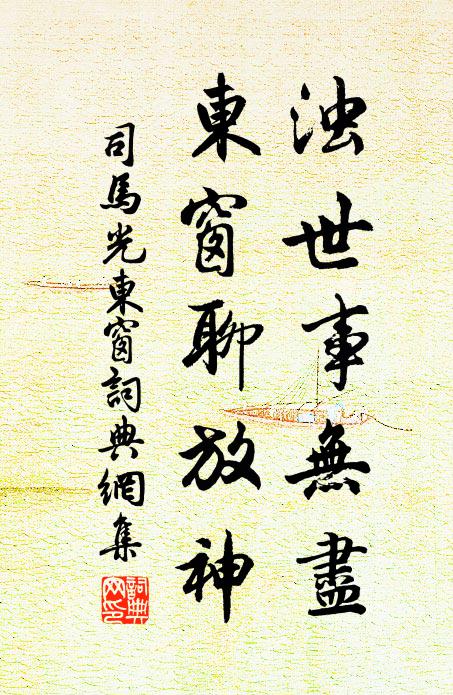 浊世事無盡
東窗聊放神
司馬光東窗詞典網集
詞典
网印